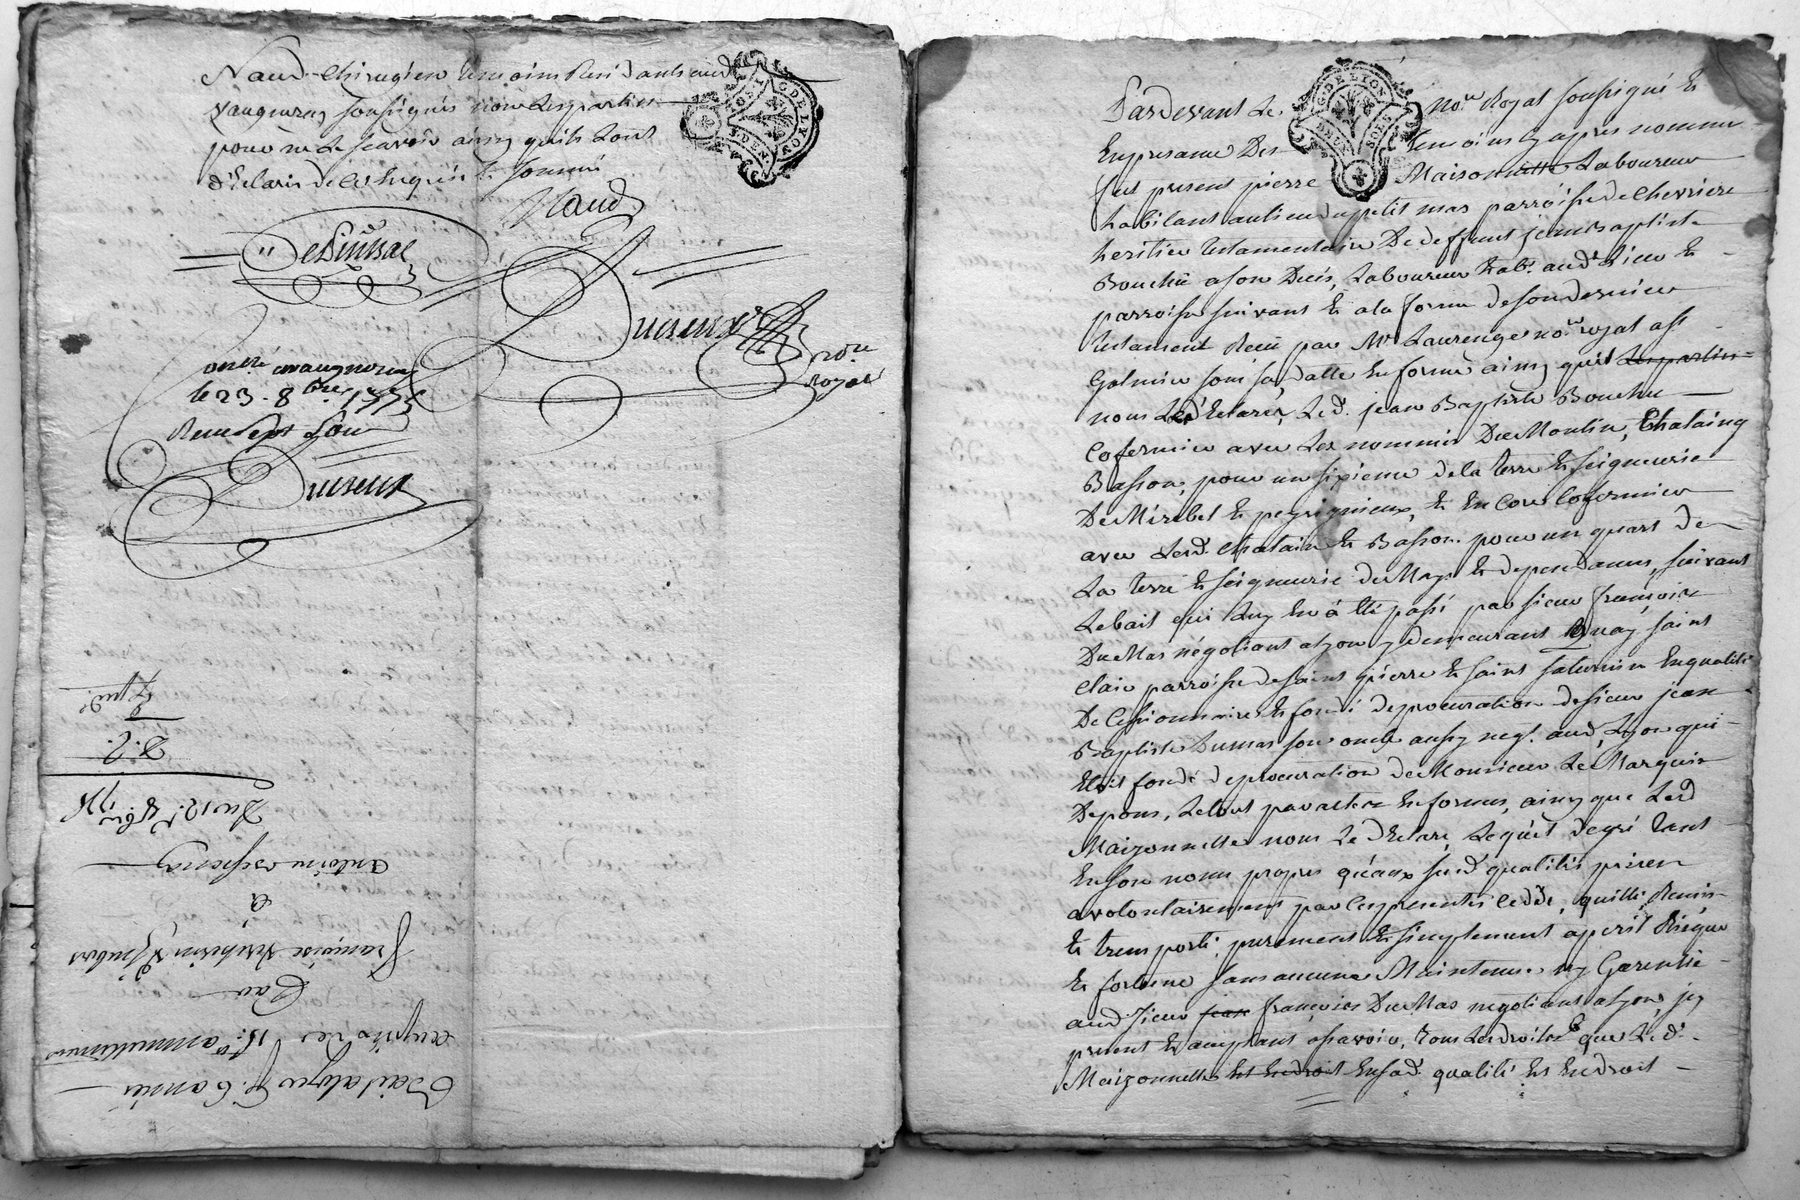 Naud Chirugien temoins Residants aud
Vaugneray soussignés non les parties
pour ne le scavoir ainsy quils l'ont
déClaré de Ce Enquis & sommé
Naud
DePinssac
nore
royal
contlé a vaugneray
le 23 8bre
Receu sept
Bail a loyer
par
françoise
a
antoine
Du 12e 8bre
G. DE LYON
DEUX SOLS
G. DE LYON
DEUX SOLS
Pardevant Le nore Royal soussigné Et
En presence Des temoins Cy apres nommes
fut present pierre Maisonnette Laboureur
habitant au lieu du petit mas parroisse de Chevriere
heritier testamentaire De deffunt jean Baptiste
Bouchu a son Deces, Laboureur habt. aud. Lieu Et
parroisse suivant Et a la forme de son dernier
testament Receu par Mr Laurenge nore royal a St
Galmier sous sa datte En forme ainsy quil
nous Lá dEclaré, Led. jean Baptiste Bouchu
Cofermier avec Les nommés DuMoulin, Chalaing
Basson, pour un sixieme de la terre Et seigneurie
De Mirebel Et perigneux, Et Encore Cofermier
avec Lesd. Chalain Et Basson pour un quart de
La terre Et seigneurie de Mays Et dependances, suivant
Le bail qui Luy En á Eté passé par sieur francois
DuMas négotiant a Lyon y demeurant Quay saint
Clair parroisse de saint pierre Et saint saturnin En qualité
De Cessionnaire Et fondé de procuration de sieur jean
Baptiste Dumas son oncle aussy negt. aud. Lyon qui
Etoit fondé de procuration de Monsieur Le Marquis
De pons, Le tout par actes En formes, ainsy que Led
Maizonnette nous Le dEclare, Lequel de gré tant
En son nom propre qúaux susd. qualités prises
a volontairement par Ces presentes Cedé, quitté, Remis
Et transporté purement Et simplement a peril Risque
Et fortune sans aucune Maintenue ny Garentie
aud. sieur jean francois DuMas negotiant a Lyon, jcy
present Et acceptant assavoir, tous Les droits que Led.
Maizonnette Est En droit En sad. qualité Est En droit